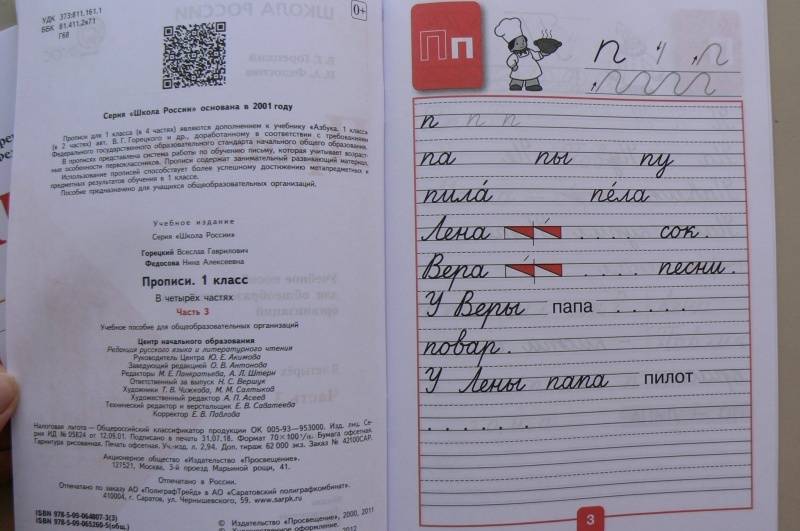 УДК 373:811.161.1
ББК 81.411.2я71
Г68
0+
Серия «Школа России» основана в 2001 году
Прописи для 1 класса (в 4 частях) являются дополнением к учебнику «Азбука. 1 класс»
(в 2 частях) авт. В. Г. Горецкого и др., доработанному в соответствии с требованиями
Федерального государственного образовательного стандарта начального общего образования.
В прописях представлена система работы по обучению письму, которая учитывает возраст-
ные особенности первоклассников. Прописи содержат занимательный развивающий материал.
Использование прописей способствует более успешному достижению метапредметных и
предметных результатов обучения в 1 классе.
Пособие предназначено для учащихся общеобразовательных организаций.
Учебное издание
Серия «Школа России»
Горецкий Всеслав Гаврилович
Федосова Нина Алексеевна
Прописи. 1 класс
В четырёх частях
Часть 3
Учебное пособие для общеобразовательных организаций
Центр начального образования
Редакция русского языка и литературного чтения
Руководитель Центра Ю. Е. Акимова
Заведующий редакцией О. В. Антонова
Редакторы М. Е. Панкратьева, А. Л. Штерн
Ответственный за выпуск Н. С. Вершук
Художники Т. В. Чижкова, М. М. Салтыков
Художественный редактор А. П. Асеев
Технический редактор и верстальщик Е. В. Саватеева
Корректор Е. В. Павлова
Налоговая льгота — Общероссийский классификатор продукции ОК 005-93—953000. Изд. лиц. Се-
рия ИД № 05824 от 12.09.01. Подписано в печать 31.07.18. Формат 70×100 1/16. Бумага офсетная.
Гарнитура рисованная. Печать офсетная. Уч.-изд. л. 2,94. Доп. тираж 62 000 экз. Заказ № 42100САР.
Акционерное общество «Издательство «Просвещение».
127521, Москва, 3-й проезд Марьиной рощи, 41.
Отпечатано в России.
Отпечатано по заказу АО «ПолиграфТрейд» в АО «Саратовский полиграфкомбинат».
410004, г. Саратов, ул. Чернышевского, 59. www.sarpk.ru
ISBN 978-5-09-064807-3(3)
ISBN 978-5-09-065260-5(общ.)
© Издательство «Просвещение», 2000, 2011
2012
Пп
п
п п п
па пы пу
пила́ пе́ла
Лена . . . . сок.
Вера . . . . песни.
У Веры папа . . . . .
повар.
У Лены папа пилот
. . . . . .
3